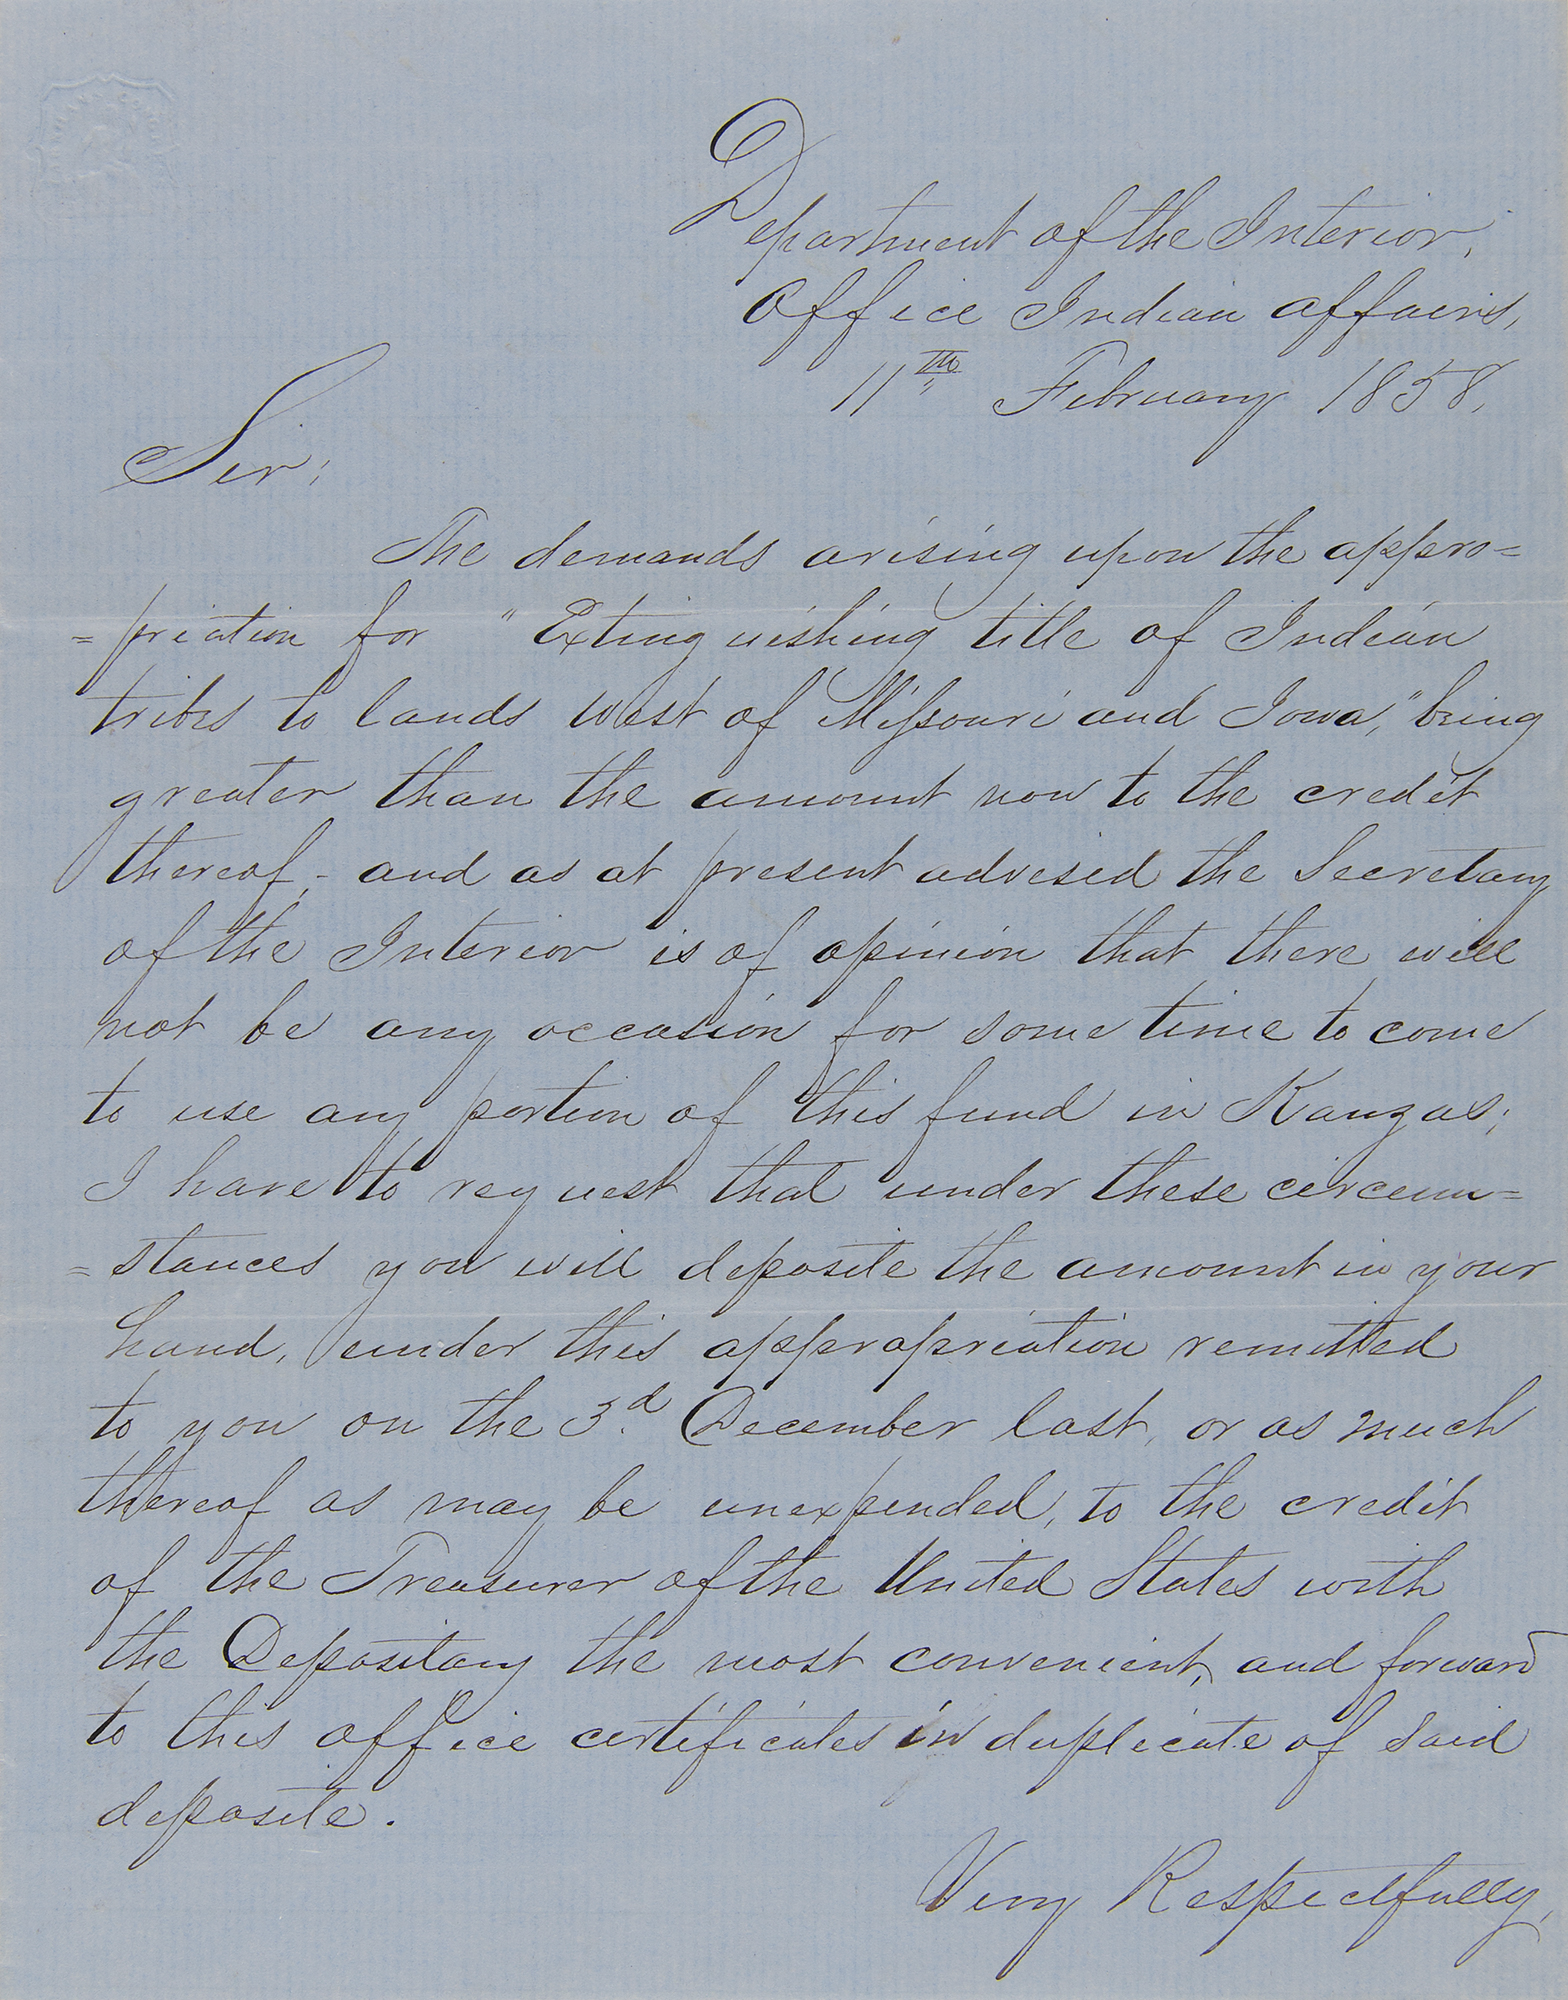 Department of the Interior,
Office Indian Affairs,
11th February 1858,
Sir;
The demands arising upon the appro=
=priation for "Extinguishing title of Indian
tribes to lands West of Missouri and Iowa," being
greater than the amount now to the credit
thereof,- and as at present advised the Secretary
of the Interior is of opinion that there will
not be any occasion for some time to come
to use any portion of this fund in Kanzas;
I have to request that under these circum=
=stances you will deposite the amount in your
hand, under this appropriation remitted
to you on the 3d. December last, or as much
thereof as may be unexpended, to the credit
of the Treasurer of the United States with
the Depositary the most convenient, and forward
to this office certificates in duplicate of said
deposite.
Very Respectfully,